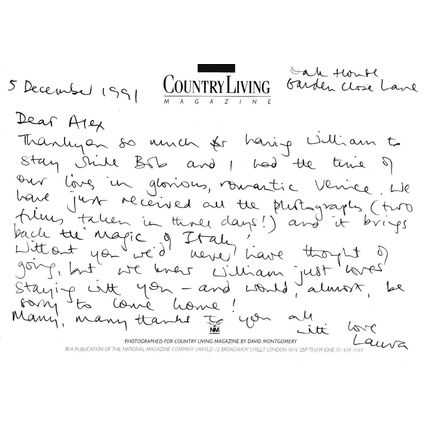 5 December 1991
COUNTRY LIVING
MAGAZINE
House
Garden Close Lane
Dear Alex
Thankyou so much for having William to
stay while Bob and I had the time of
our lives in glorious, romantic Venice. We
have just received all the photographs (two
films taken in three days!) and it brings
back the magic of Italy!
Without you we'd never have thought of
going, but we knew William just loves
staying with you – and would, almost, be
sorry to come home!
Many, many thanks to you all
with love
Laura
NM
PHOTOGRAPHED FOR COUNTRY LIVING MAGAZINE BY DAVID MONTGOMERY
© A PUBLICATION OF THE NATIONAL MAGAZINE COMPANY LIMITED 72 BROADWICK STREET LONDON W1V 2BP TELEPHONE 01-439